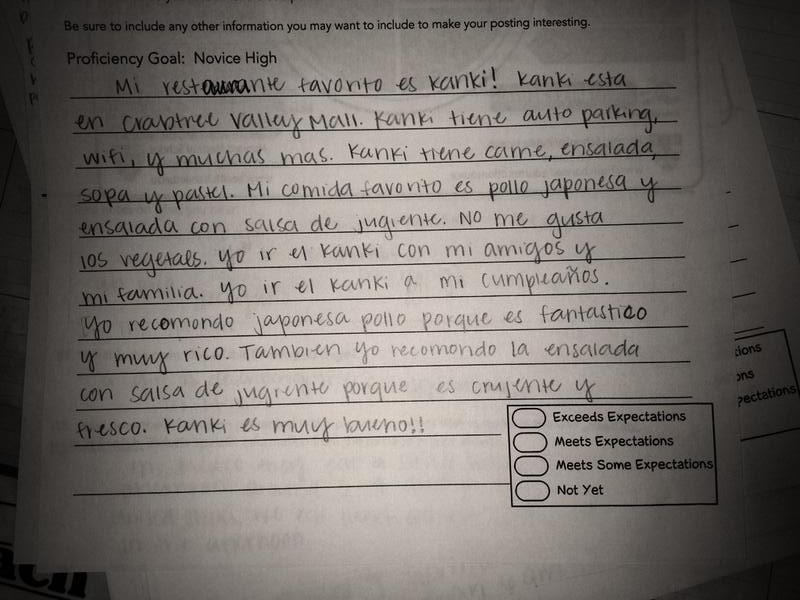 Be sure to include any other information you may want to include to make your posting interesting.
Proficiency Goal: Novice High
Mi restaurante favorito es Kanki! Kanki esta
en Crabtree Valley Mall. Kanki tiene auto parking,
wifi, y muchas mas. Kanki tiene carne, ensalada,
sopa y pastel. Mi comida favorito es pollo japonesa y
ensalada con salsa de jugiente. No me gusta
los vegetaes. Yo ir el Kanki con mi amigos y
mi familia. Yo ir el Kanki a mi cumpleaños.
Yo recomondo japonesa pollo porque es fantastico
y muy rico. Tambien yo recomondo la ensalada
con salsa de jugiente porque es crujente y
fresco. Kanki es muy bueno!!
Exceeds Expectations
Meets Expectations
Meets Some Expectations
Not Yet
tions
ons
pectations